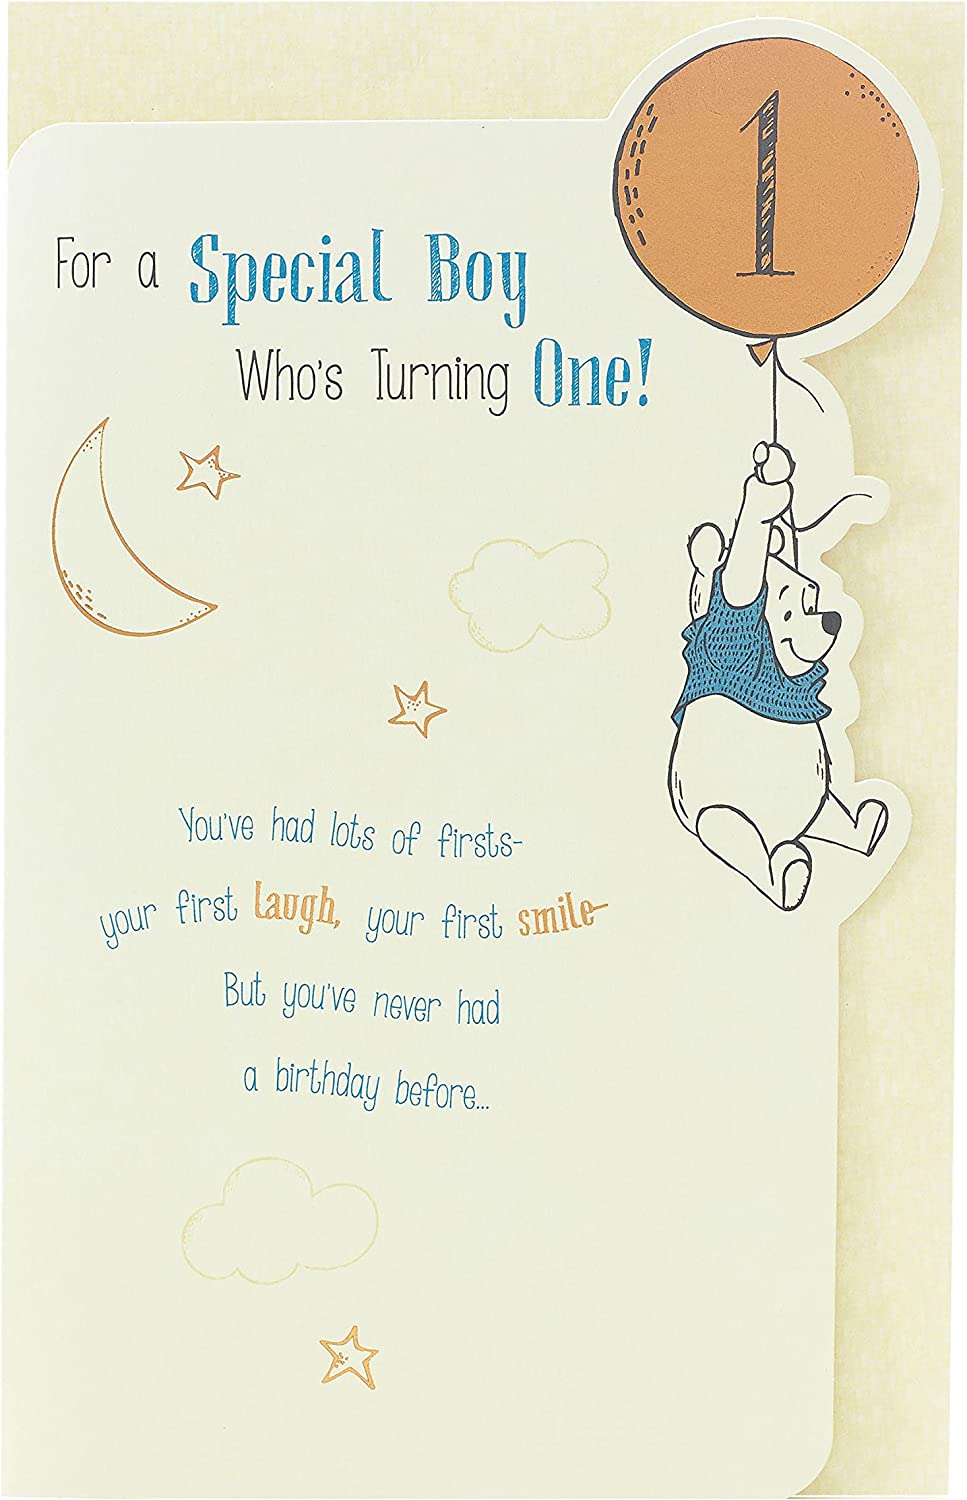 1
For a Special Boy
Who's Turning One!
You've had lots of firsts-
your first laugh, your first smile-
But you've never had
a birthday before...